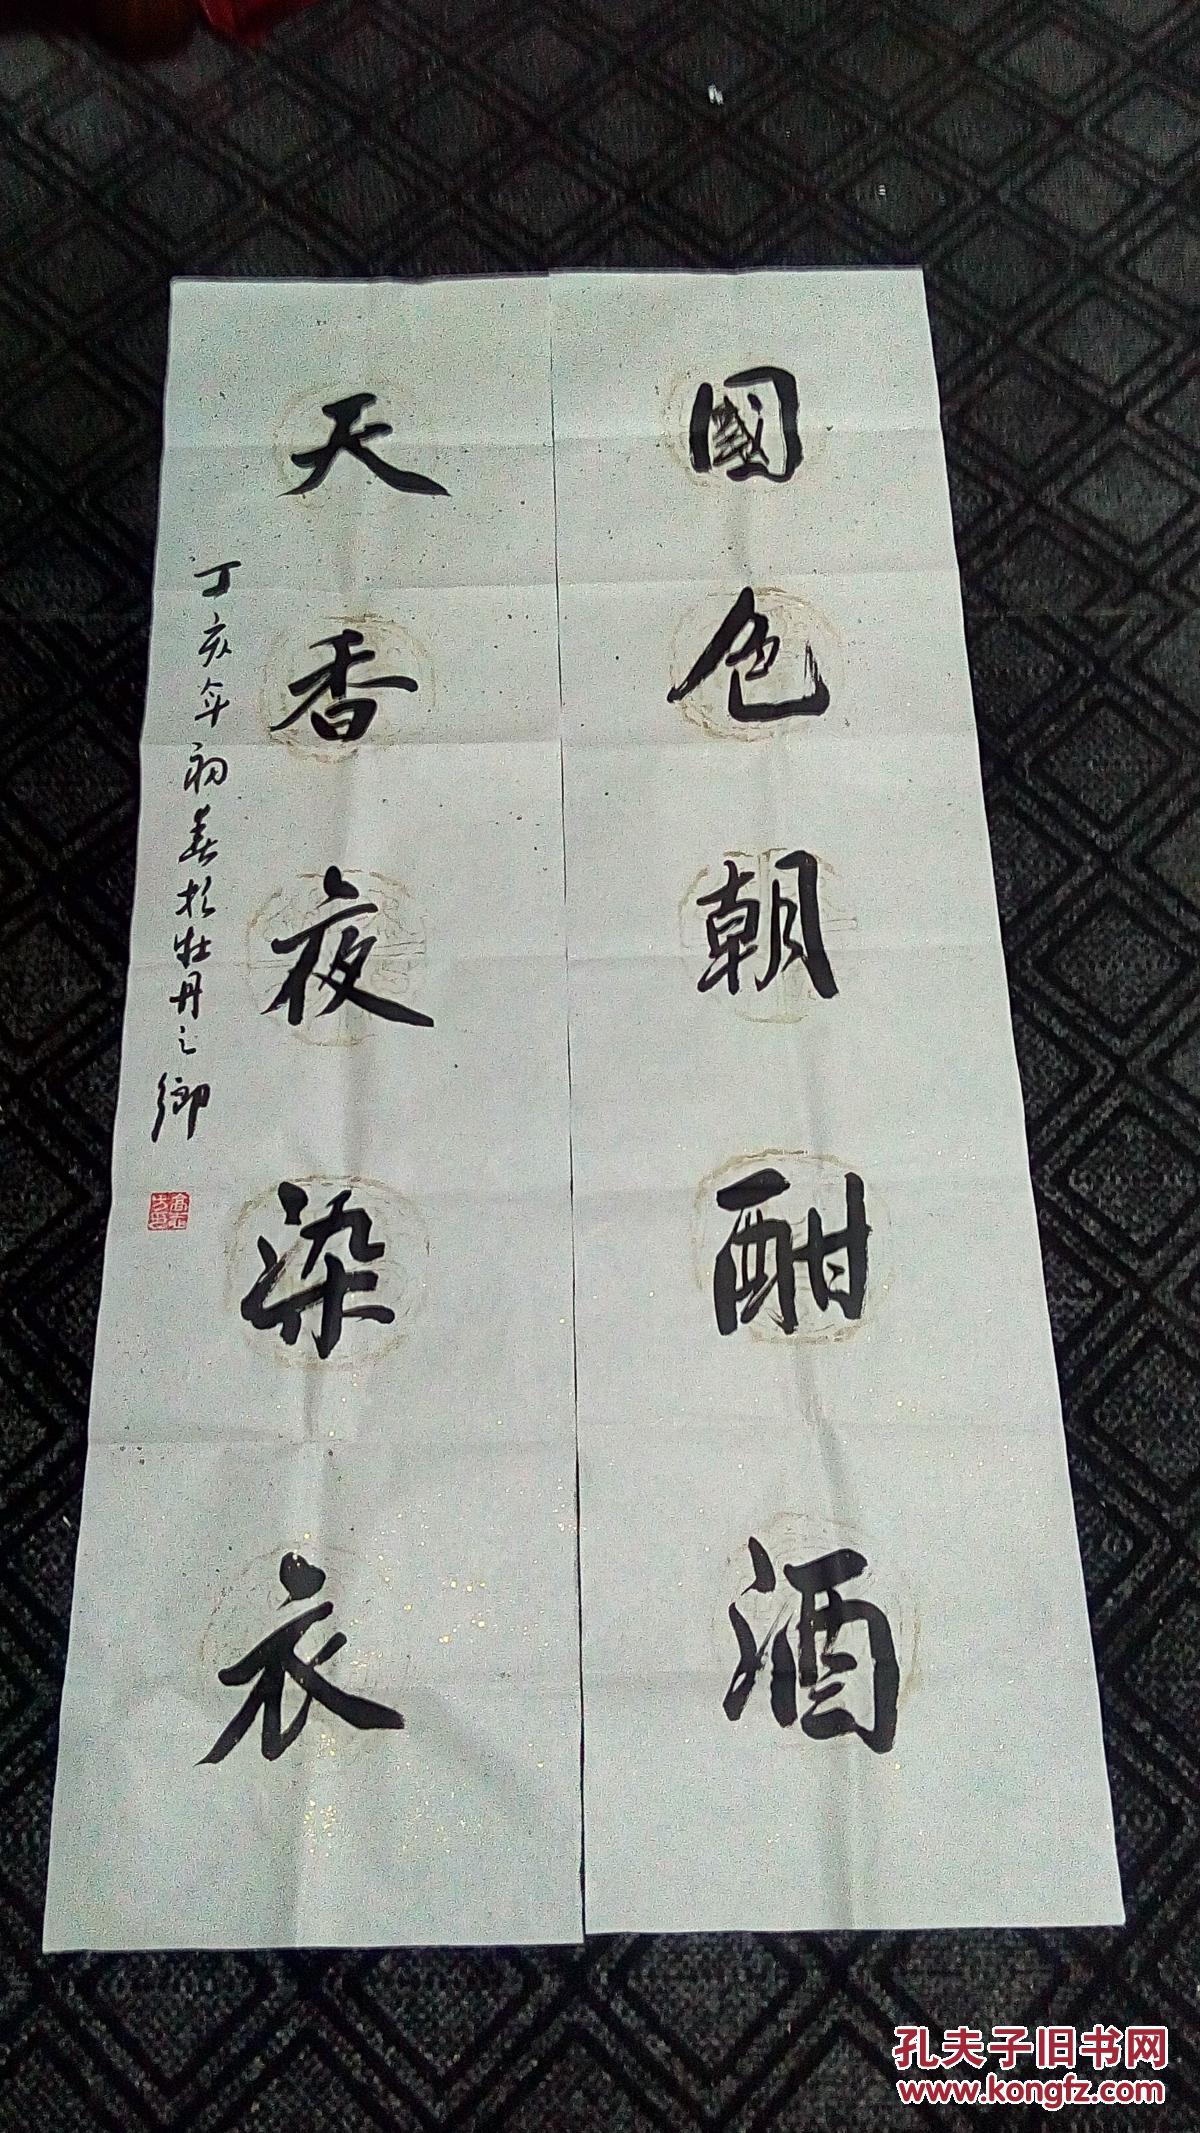 國色朝酣酒
天香夜染衣
丁亥年初春於牡丹之鄉
孔夫子旧书网
www.kongfz.com